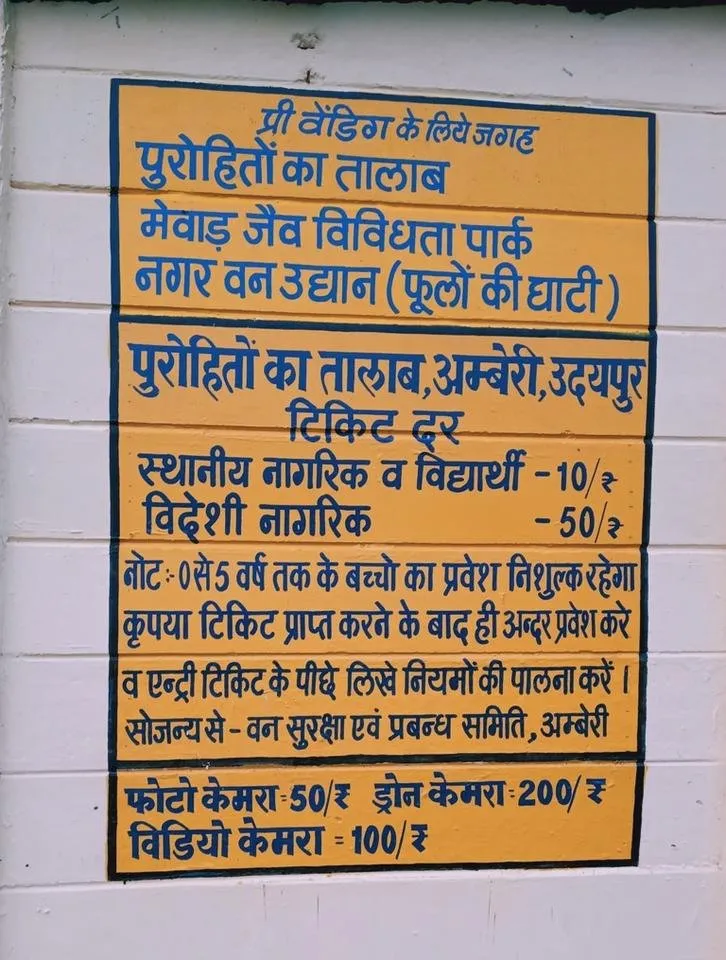 प्री वेंडिग के लिये जगह
पुरोहितों का तालाब
मेवाड़ जैव विविधता पार्क
नगर वन उद्यान (फूलों की घाटी)
पुरोहितों का तालाब, अम्बेरी, उदयपुर
टिकिट दर
स्थानीय नागरिक व विद्यार्थी - 10/₹
विदेशी नागरिक - 50/₹
नोट:- 0 से 5 वर्ष तक के बच्चो का प्रवेश निशुल्क रहेगा
कृपया टिकिट प्राप्त करने के बाद ही अन्दर प्रवेश करे
व एन्ट्री टिकिट के पीछे लिखे नियमों की पालना करें ।
सोजन्य से - वन सुरक्षा एवं प्रबन्ध समिति, अम्बेरी
फोटो केमरा = 50/₹ ड्रोन केमरा = 200/₹
विडियो केमरा = 100/₹